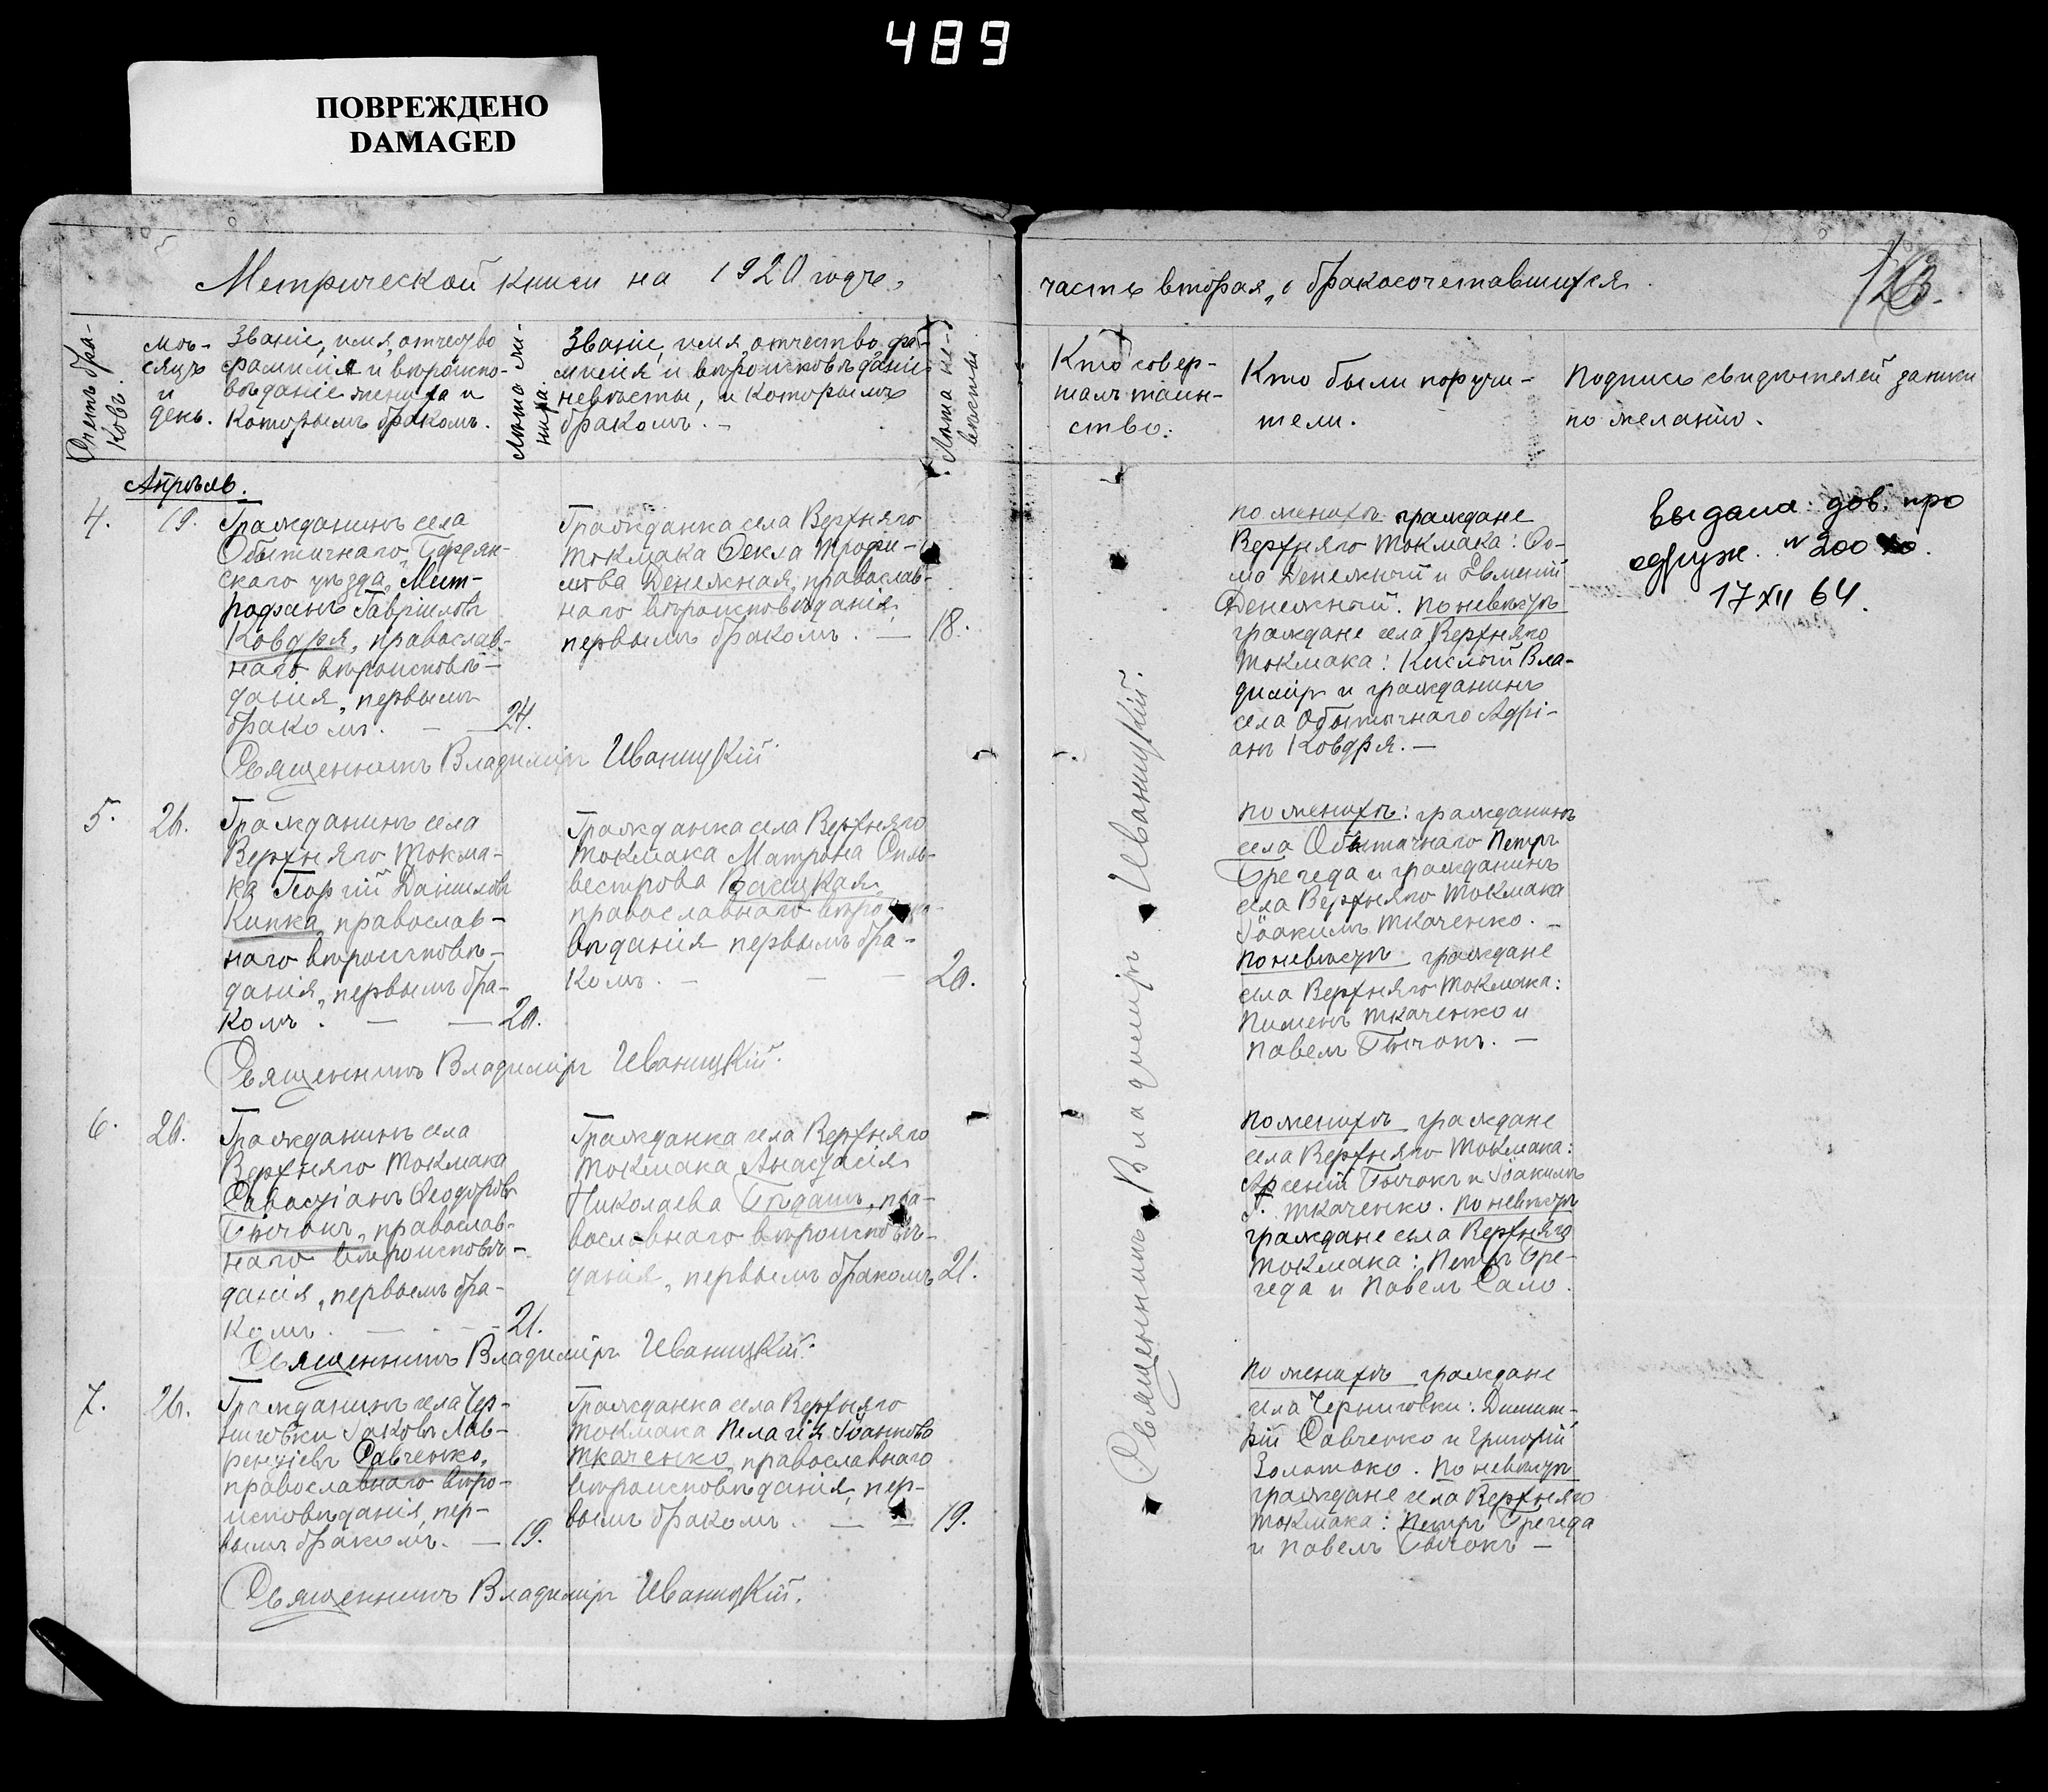 489
ПОВРЕЖДЕНО
DAMAGED
Метрической книги на 1920 годъ,
часть вторая, о бракосочетавшихся.
Счетъ бра-
ковъ.
Мѣ-
сяцъ
и
день.
Званіе, имя, отчество
фамилія и вѣроиспо-
вѣданіе жениха и
которымъ бракомъ.
Лѣта же-
ниха.
Званіе, имя, отчество, фа-
милія и вѣроисповѣданіе
невѣсты, и которымъ
бракомъ. -
Лѣта не-
вѣсты.
Кто совер-
шалъ таин-
ство:
Кто были поручи-
тели.
Подпись свидѣтелей записи
по желанію.
Апрѣль.
4. 19.
Гражданинъ села
Обыточнаго Бердян-
скаго уѣзда, Мит-
рофанъ Гавріиловъ
Ковдря, православ-
наго вѣроисповѣ-
данія, первымъ
бракомъ. — 24.
Гражданка села Верхняго
Токмака Ѳекла Трофи-
мова Денежная, православ-
наго вѣроисповѣданія,
первымъ бракомъ. — 18.
Священникъ Владиміръ Иваницкій.
по женихѣ граждане
Верхняго Токмака: Ѳо-
ма Денежный и Евмений
Денежный. по невѣстѣ
граждане села Верхняго
Токмака: Кислый Вла-
диміръ и гражданинъ
села Обыточнаго Адрі-
анъ Ковдря. —
выдана дов. про
одруж. N 200
17 XII 64.
5. 26.
Гражданинъ села
Верхняго Токма-
ка Георгій Даніиловъ
Кипка, православ-
наго вѣроисповѣ-
данія, первымъ бра-
комъ. — — 20.
Гражданка села Верхняго
Токмака Матрона Силь-
вестрова
православнаго
вѣданія первымъ бра-
комъ. — — — 20.
Священникъ Владиміръ Иваницкій.
по женихѣ: гражданинъ
села Обыточнаго Петръ
Брегеда и гражданинъ
села Верхняго Токмака
Іоакимъ Ткаченко. —
По невѣстѣ граждане
села Верхняго Токмака:
Пименъ Ткаченко и
Павелъ Бычокъ. —
6. 26.
Гражданинъ села
Верхняго Токмака
Савастіанъ Ѳеодоровъ
Бычокъ, православ-
наго вѣроисповѣ-
данія, первымъ бра-
комъ. — - - 21.
Гражданка села Верхняго
Токмака Анастасія
Николаева Бѣдашъ, пра-
вославнаго вѣроисповѣ-
данія, первымъ бракомъ 21.
Священникъ Владиміръ Иваницкій.
по женихѣ граждане
села Верхняго Токмака:
Арсеній Бычокъ и Іоакимъ
Г. Ткаченко. по невѣстѣ
граждане села Верхняго
Токмака: Петръ Бре-
геда и Павелъ Сало.
7. 26.
Гражданинъ села Чер-
ниговки Іаковъ Лав-
рентіевъ Савченко,
православнаго вѣро-
исповѣданія, пер-
вымъ бракомъ. — 19.
Гражданка села Верхняго
Токмака Пелагія Іоаннова
Ткаченко, православнаго
вѣроисповѣданія, пер-
вымъ бракомъ. — — 19.
Священникъ Владиміръ Иваницкій.
по женихѣ граждане
села Черниговки: Димит-
рій Савченко и Григорій
Золотоко. По невѣстѣ
граждане села Верхняго
Токмака: Петръ Брегеда
и Павелъ Бычокъ —
Священникъ Владиміръ Иваницкій.